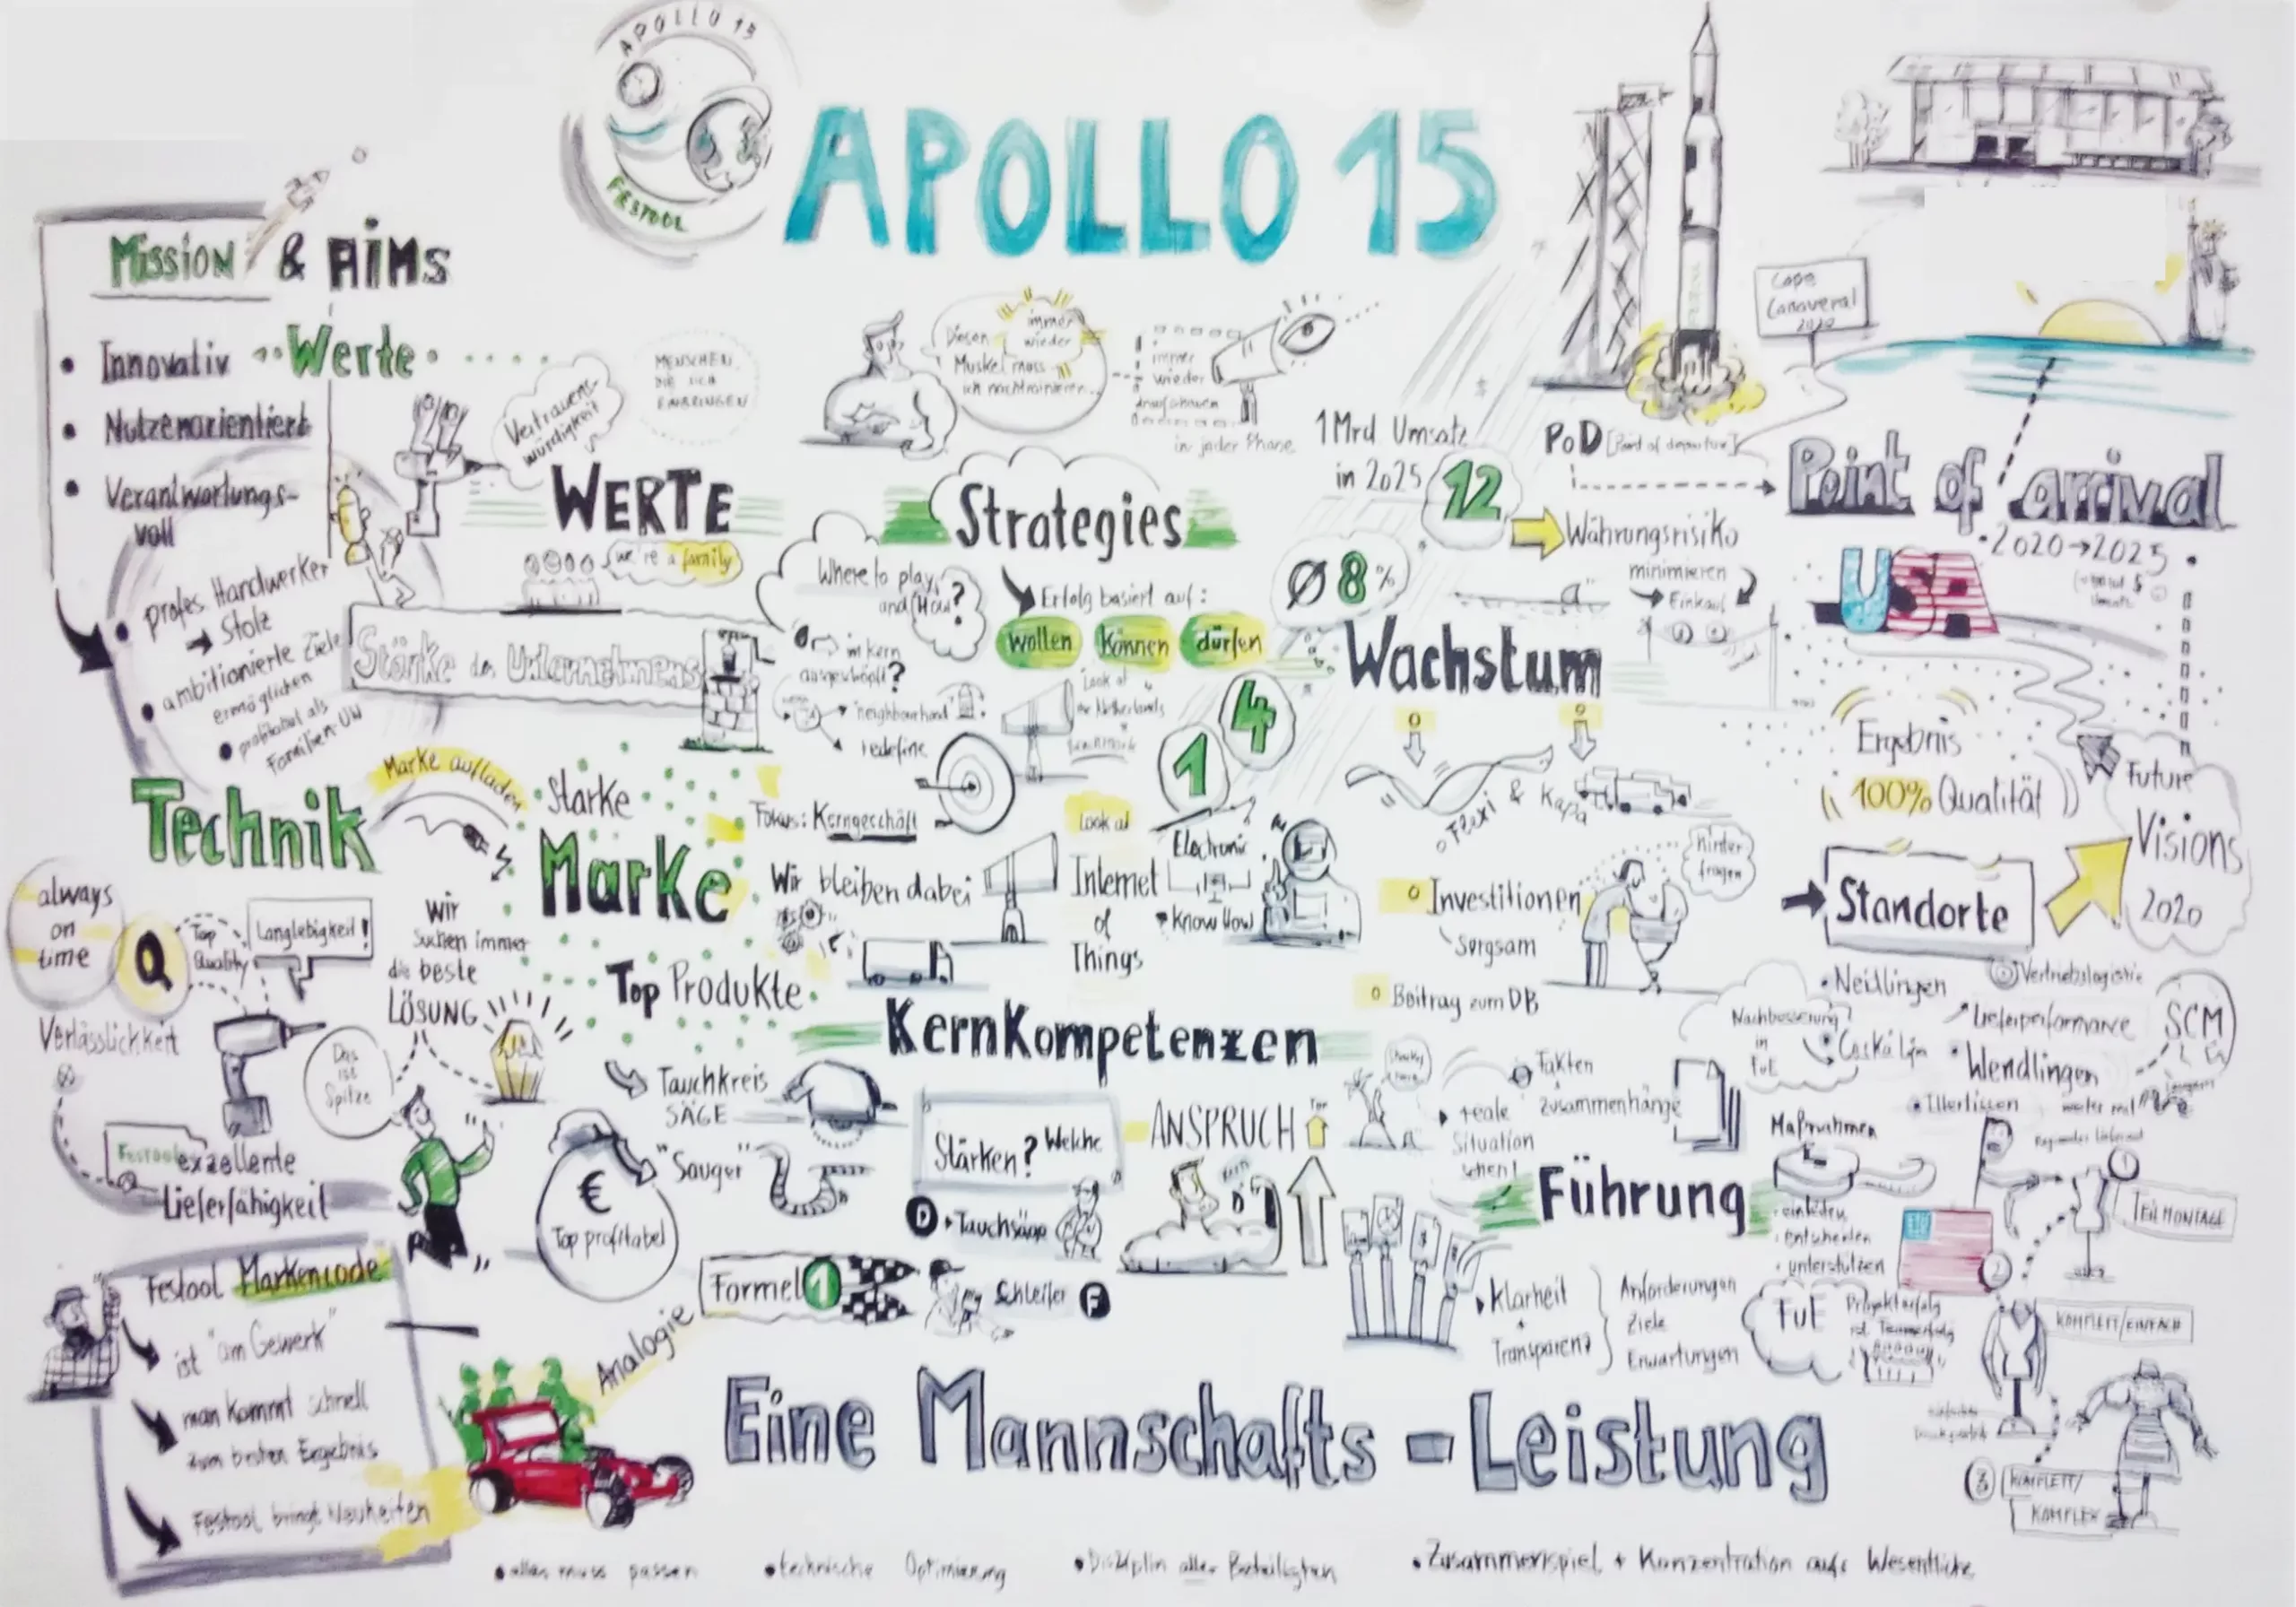 APOLLO 15
FESTOOL
APOLLO 15
Mission & AIMS
• Innovativ
• Nutzenorientiert
• Verantwortungs-
voll
Werte
• profes Handwerker
→ Stolz
• ambitionierte Ziele
ermöglichen
• profitabel als
Familien-UN
Vertrauens-
würdigkeit
MENSCHEN,
DIE SICH
EINBRINGEN
WERTE
we're a family
Stärke des Unternehmens
Diesen
immer
wieder
Muskel muss
ich nachtrainieren...
immer
wieder
draufschauen
in jeder Phase
Strategies
Where to play,
and How?
Erfolg basiert auf:
wollen
können
dürfen
im Kern
ausgeschöpft?
"neighbourhood"
redefine
Look at
the Netherlands
1
4
Fokus: Kerngeschäft
Wir bleiben dabei
Look at
Internet
of
Things
Electronic
Know How
1 Mrd Umsatz
in 2025
12
Ø 8%
PoD [Point of departure]
Währungsrisiko
minimieren
→ Einkauf
Wachstum
Flexi & Kapa
Investitionen
sorgsam
hinter
fragen
Beitrag zum DB
Cape
Canaveral
2020
Point of arrival
• 2020→2025 •
USA
Ergebnis
100% Qualität
Future
Visions
2020
Standorte
• Neidlingen
Vertriebslogistik
Lieferperformance
SCM
Nachbesserung
in
FuE
• Česká Lípa
• Wendlingen
• Illertissen
Technik
always
on
time
Q
Top
Quality
Langlebigkeit!
Verlässlichkeit
Festool
exzellente
Lieferfähigkeit
Marke aufladen
Starke
Marke
Top Produkte
Wir
suchen immer
die beste
LÖSUNG
Das
ist
Spitze
KernKompetenzen
Tauchkreis
SÄGE
"Sauger"
€
Top profitabel
Stärken? Welche
D Tauchsäge
Schleifer F
ANSPRUCH
Top
Formel 1
Analogie
Fakten
Zusammenhänge
reale
Situation
sehen!
Führung
Klarheit
+
Transparenz
Anforderungen
Ziele
Erwartungen
Maßnahmen
• einleiten
• entscheiden
• unterstützen
FuE
Projekterfolg
ist Teamerfolg
1
TEILMONTAGE
2
KOMPLETT/EINFACH
3
KOMPLETT/
KOMPLEX
Festool Markencode
ist "am Gewerk"
man kommt schnell
zum besten Ergebnis
Festool bringt Neuheiten
Eine Mannschafts-Leistung
• alles muss passen
• technische Optimierung
• Disziplin aller Beteiligten
• Zusammenspiel + Konzentration aufs Wesentliche